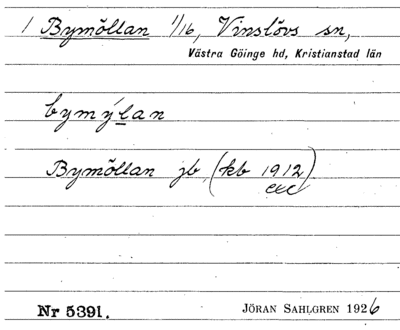 1 Bymöllan 1/16, Vinslövs sn,
Västra Göinge hd, Kristianstad län
bymýlan
Bymöllan jb, (kb 1912)
exc
Nr 5391. JÖRAN SAHLGREN 1926